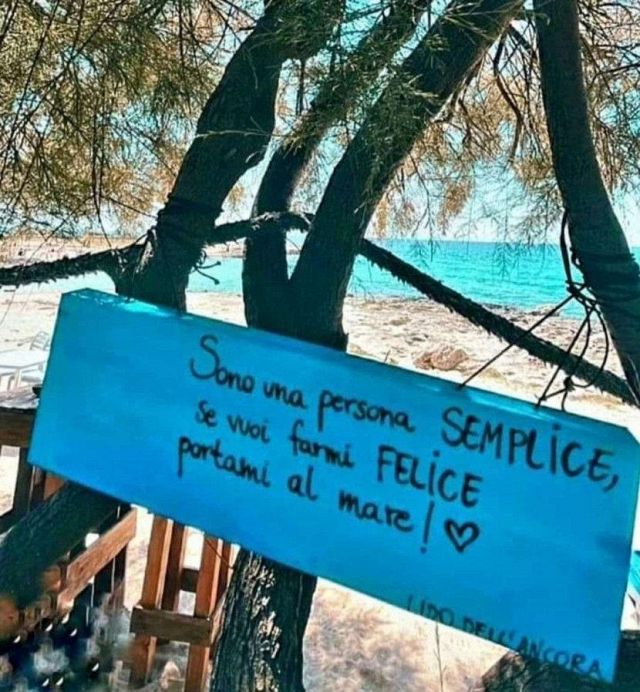 Sono una persona SEMPLICE,
se vuoi farmi FELICE
portami al mare! ♡
LIDO DELL'ANCORA